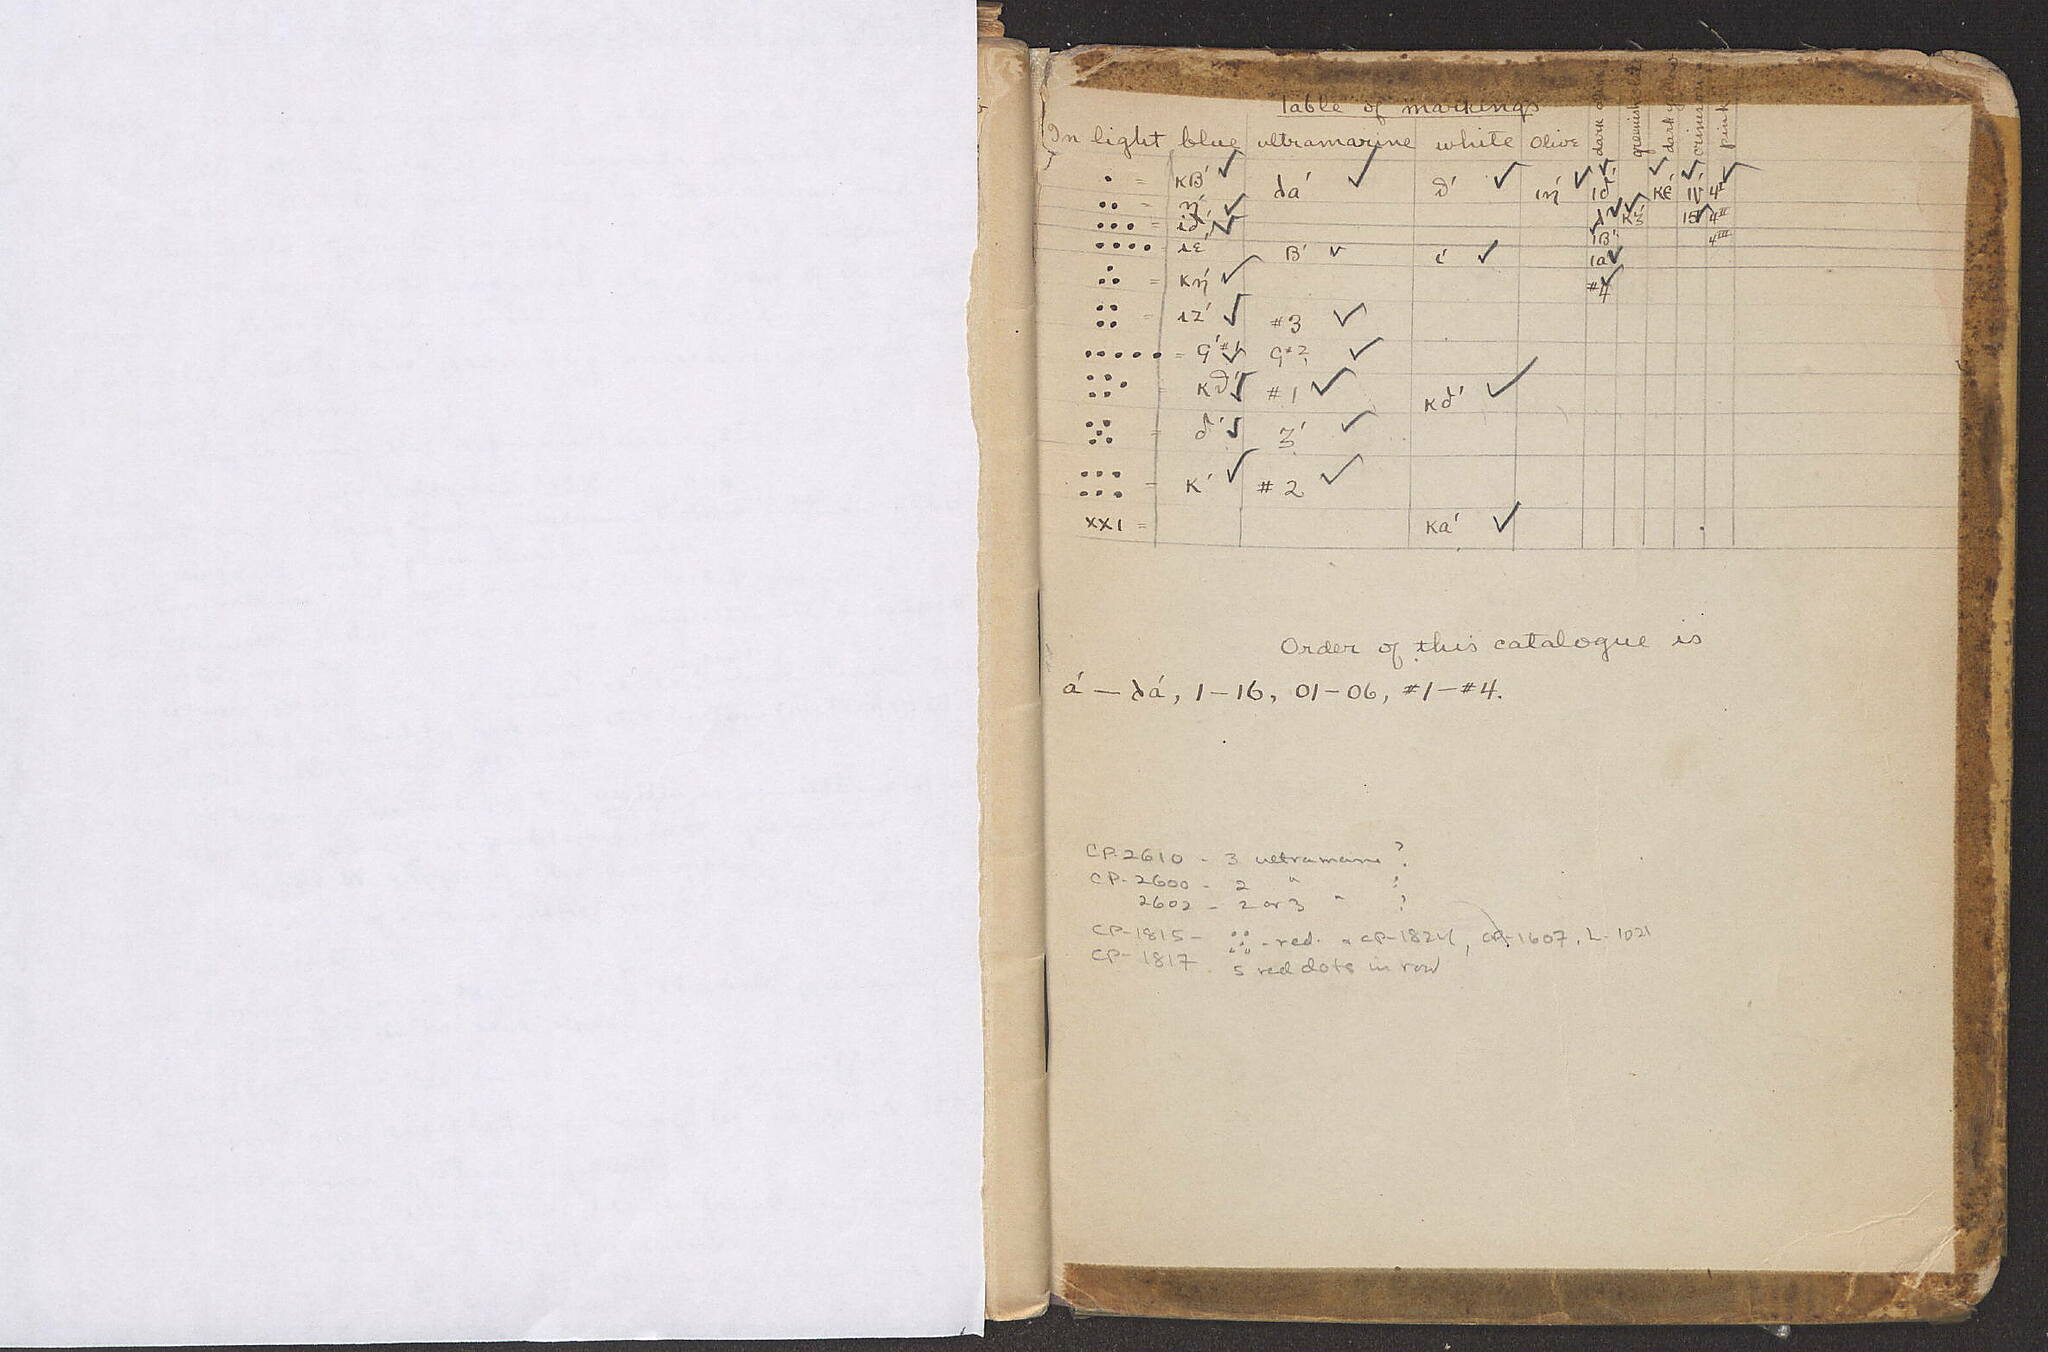 Table of markings
In light blue ultramarine white Olive dark olive greenish dark crimson pink
• = κβ´ ✓ λα´ ✓ θ´ ✓ ιη´ ✓ ✓ κε´ ✓ ✓ 4ᴵ ✓
•• = η´ ✓ λ´ ✓ κζ´ ✓ 15 ✓ 4ᴵᴵ
••• = ιδ´ ✓ ιβ´ 4ᴵᴵᴵ
•••• = ιε´ β´ ✓ ι´ ✓ ια´ ✓
∴ = κη´ ✓ #4 ✓
:: = ιζ´ ✓ #3 ✓
••••• = ϛ´#1 ✓ ϛ#2 ✓
::• = κθ´ ✓ #1 ✓ κδ´ ✓
⁙ = δ´ ✓ ζ´ ✓
::: = κ´ ✓ #2 ✓
XXI = κα´ ✓
Order of this catalogue is
α´ — λα´, 1–16, 01–06, #1–#4.
CP-2610 - 3 ultramarine ?
CP-2600 - 2 " ?
2602 - 2 or 3 " ?
CP-1815 - ⁙ - red. CP-1824, CP-1607, L-1021
CP-1817 5 red dots in row